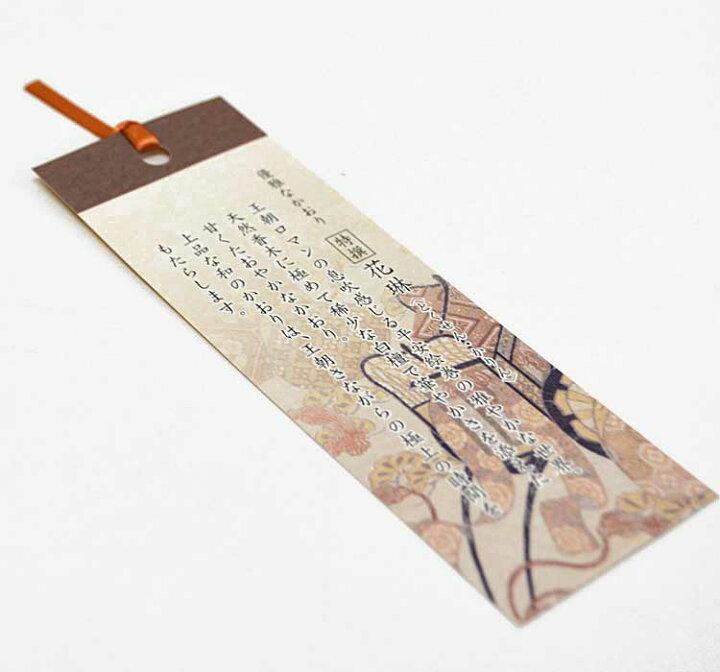 優雅なかおり
特撰 花琳(とくせん・かりん)
王朝ロマンの息吹感じる平安絵巻の雅やかな世界。
天然香木に極めて稀少な白檀で華やかさを添えた
甘くたおやかなかおり。
上品な和のかおりは、王朝さながらの極上の時間を
もたらします。